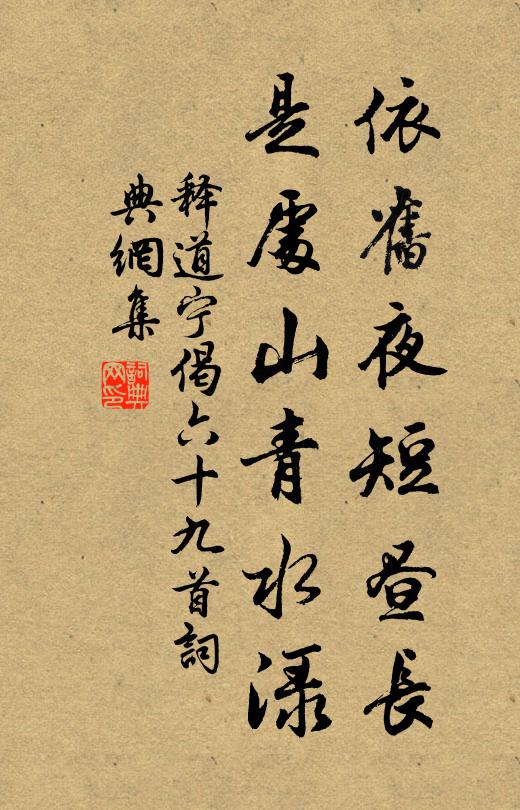 依舊夜短昼長
是處山青水渌
释道宁偈六十九首詞
典網集
詞典
网印